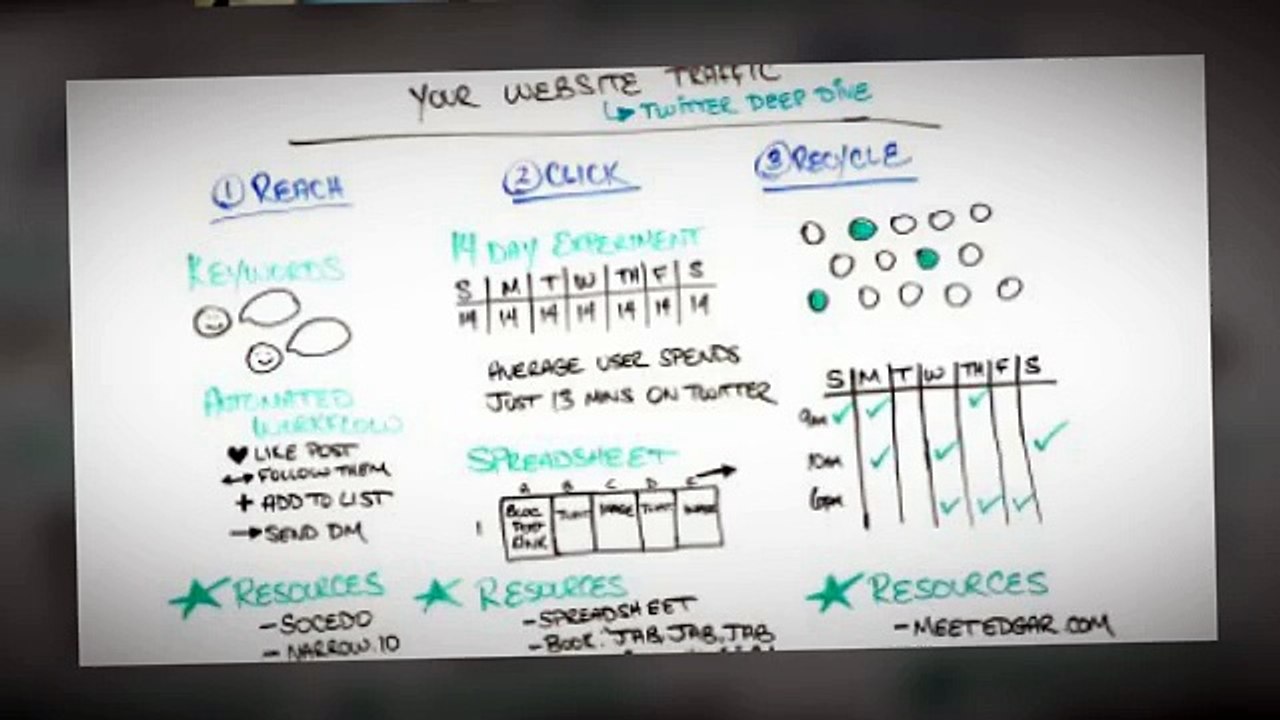 YOUR WEBSITE TRAFFIC
↳ TWITTER DEEP DIVE
① REACH
KEYWORDS
AUTOMATED
WORKFLOW
♥ LIKE POST
↔ FOLLOW THEM
+ ADD TO LIST
→ SEND DM
★ RESOURCES
- SOCEDO
- NARROW.IO
② CLICK
14 DAY EXPERIMENT
S M T W TH F S
14 14 14 14 14 14 14
AVERAGE USER SPENDS
JUST 13 MINS ON TWITTER
SPREADSHEET
A B C D E
1 BLOG TWEET IMAGE TWEET IMAGE
POST
LINK
★ RESOURCES
- SPREADSHEET
- BOOK: "JAB, JAB, JAB
③ RECYCLE
S M T W TH F S
9am ✓ ✓ ✓
10am ✓ ✓ ✓
6pm ✓ ✓ ✓
★ RESOURCES
- MEETEDGAR.COM